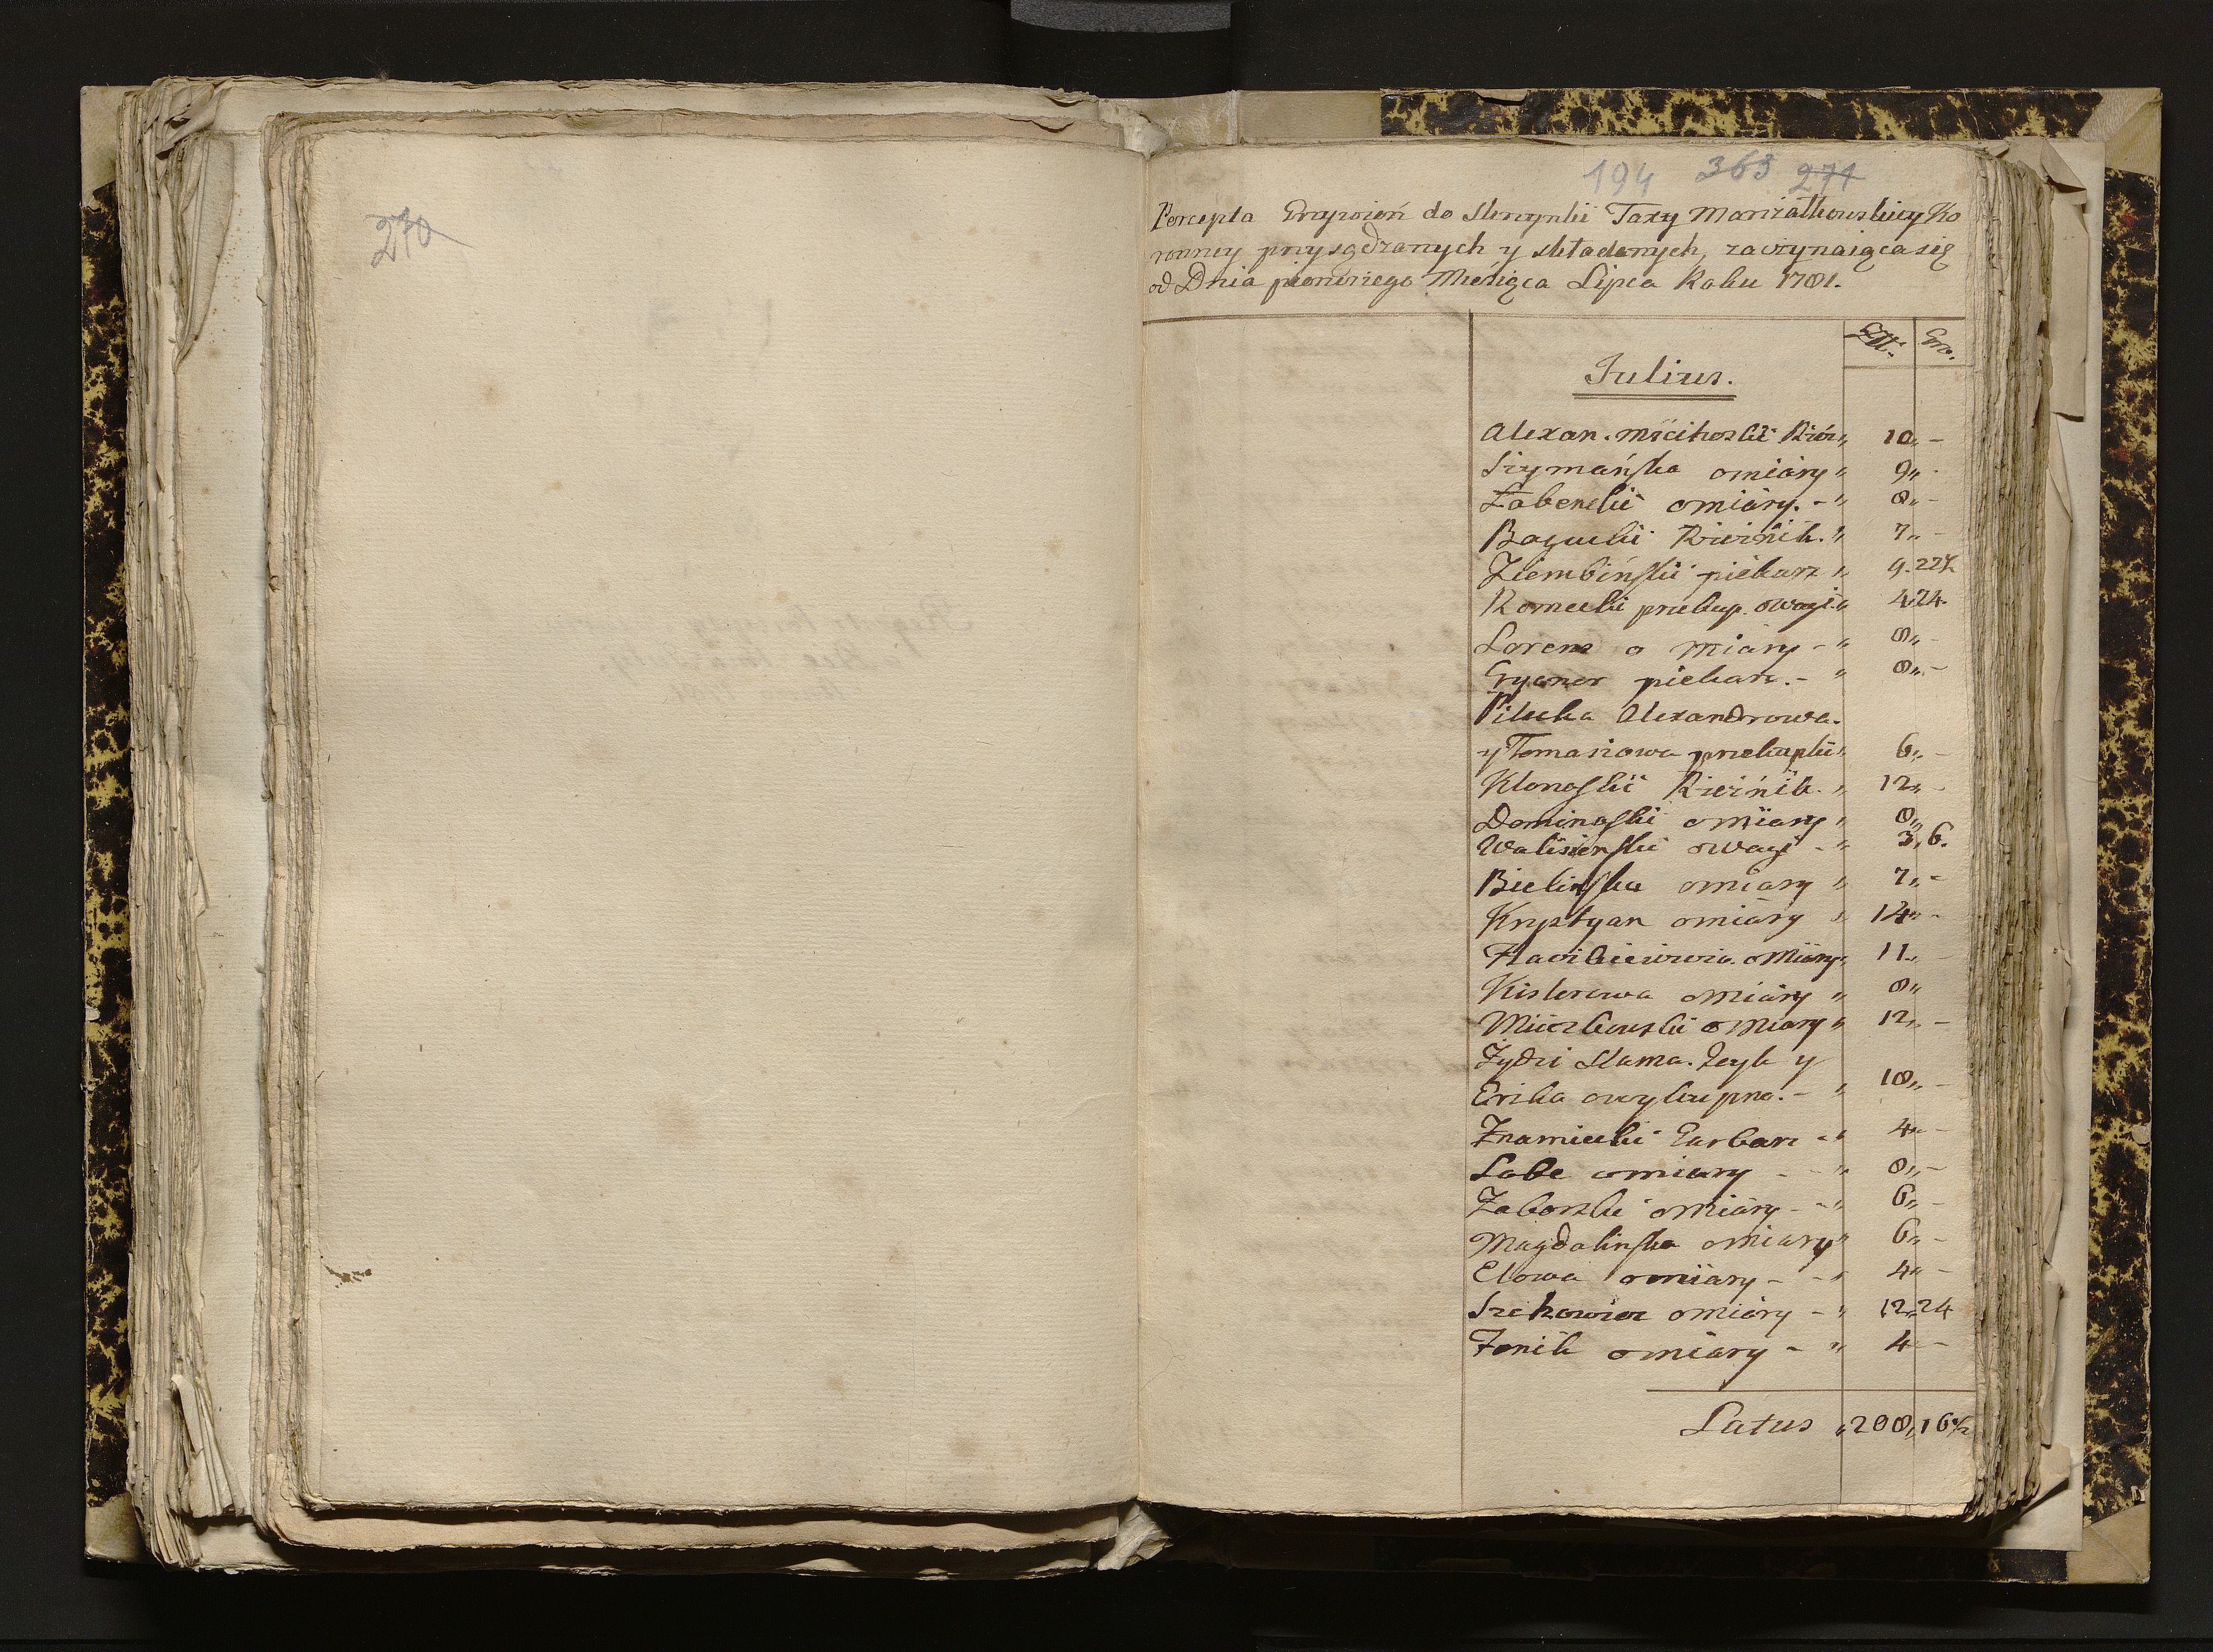 270
194 363 271
Percepta Grzywien do Skrzynki Taxy Marszałkowskiey Ko
ronney przysądzanych y składanych, zaczynaiąca się
od Dnia pierwszego Miesiąca Lipca Roku 1781.
Złł. Gro.
Julius.
Alexan. Mścihoski Rzeź„ 10„ -
Szymańska o miary „ 9„ -
Łabenski o miary. - „ 8„ -
Bogucki Rzeźnik. „ 7„ -
Ziembiński piekarz „ 9. 22½
Romecki przekup. o wagi. „ 4. 24.
Lorens o miary - „ 8„ -
piekarz. - „ 8„ -
Pilecka Alexandrowa.
y Tomaszowa przekupki „ 6„ -
Klonoski Rzeźnik. „ 12„ -
Dominoski o miary „ 8„
o wagi - „ 3„ 6.
Bielińska o miary „ 7„ -
Krystyan o miary „ 14„ -
o miary „ 11„ -
Kislerowa o miary „ 8„
Mierzkowski o miary „ 12„ -
Żydzi Slama. Zeyk y
o wykupno. - „ 18„ -
Znamiecki Garbarz - „ 4„ -
Labe o miary - - „ 8„ -
Zaborski o miary - „ 6„ -
Magdalinska o miary „ 6„ -
Elowa o miary - - „ 4„ -
o miary - „ 12„ 24
Zonik o miary - „ 4 -
Latus „ 208„ 16½